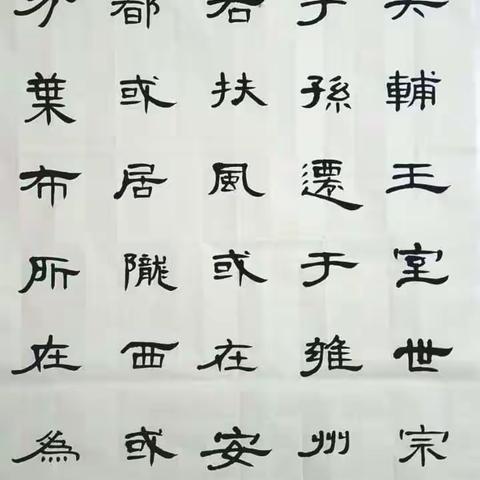 輔王室世宗
子孫遷于雍州
右扶風或在安
都或居隴西或
分葉布所在為